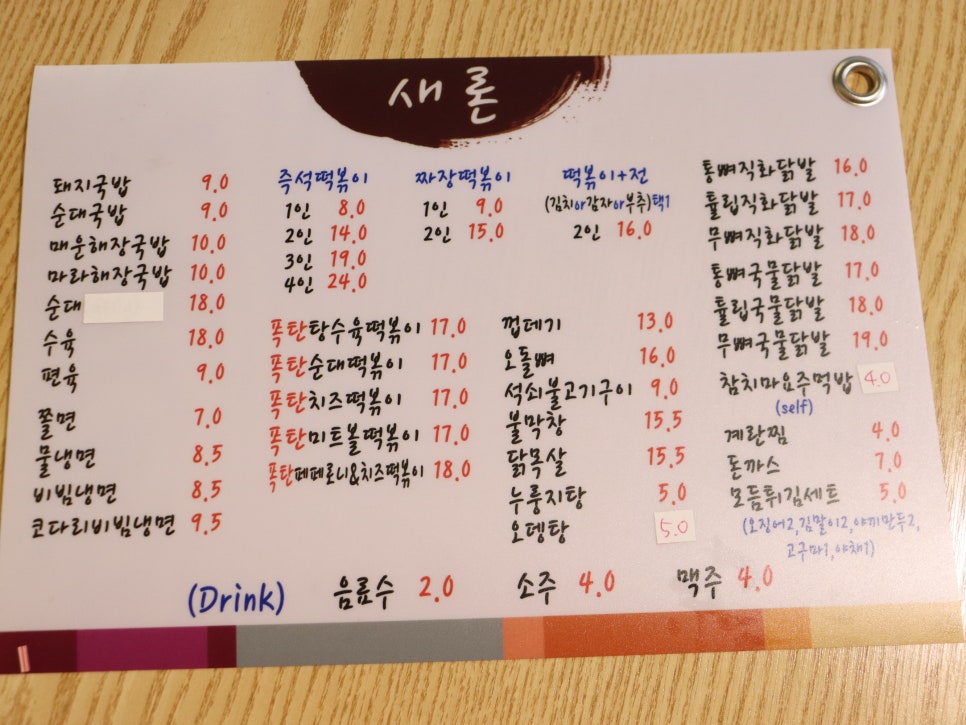 새론
돼지국밥 9.0
순대국밥 9.0
매운해장국밥 10.0
마라해장국밥 10.0
순대 18.0
수육 18.0
편육 9.0
쫄면 7.0
물냉면 8.5
비빔냉면 8.5
코다리비빔냉면 9.5
즉석떡볶이
1인 8.0
2인 14.0
3인 19.0
4인 24.0
짜장떡볶이
1인 9.0
2인 15.0
떡볶이+전
(김치or감자or부추)택1
2인 16.0
폭탄탕수육떡볶이 17.0
폭탄순대떡볶이 17.0
폭탄치즈떡볶이 17.0
폭탄미트볼떡볶이 17.0
폭탄페페로니&치즈떡볶이 18.0
껍데기 13.0
오돌뼈 16.0
석쇠불고기구이 9.0
불막창 15.5
닭목살 15.5
누룽지탕 5.0
오뎅탕 5.0
통뼈직화닭발 16.0
튤립직화닭발 17.0
무뼈직화닭발 18.0
통뼈국물닭발 17.0
튤립국물닭발 18.0
무뼈국물닭발 19.0
참치마요주먹밥 4.0
(self)
계란찜 4.0
돈까스 7.0
모듬튀김세트 5.0
(오징어2,김말이2,야끼만두2,
고구마1,야채1)
(Drink) 음료수 2.0 소주 4.0 맥주 4.0